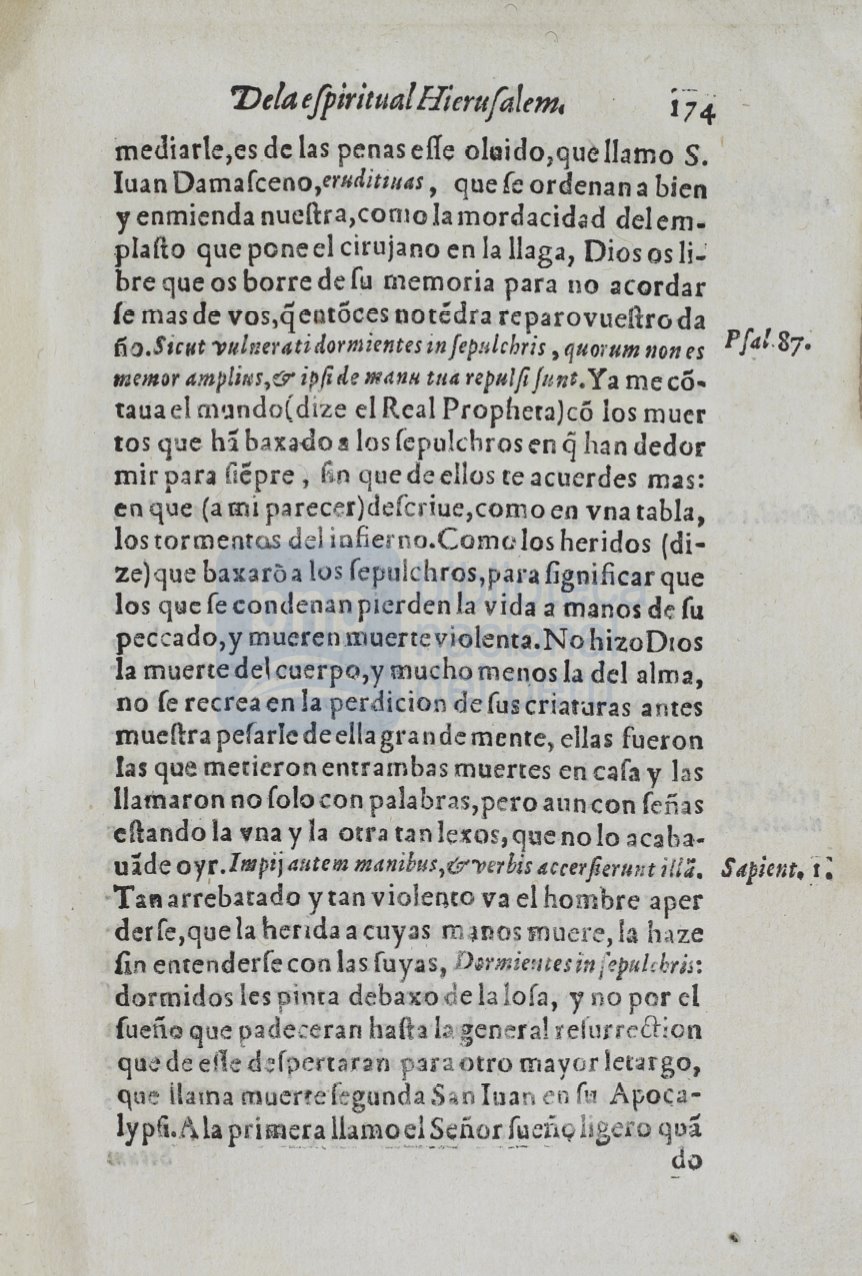 De la eſpiritual Hieruſalem. 174
mediarle, es de las penas eſſe oluido, que llamo S.
Iuan Damaſceno, eruditiuas, que ſe ordenan a bien
y enmienda nueſtra, como la mordacidad del em-
plaſto que pone el cirujano en la llaga, Dios os li-
bre que os borre de ſu memoria para no acordar
ſe mas de vos, q̃ entõces no tẽdra reparo vueſtro da
ño. Sicut vulnerati dormientes in ſepulchris, quorum non es
Pſal. 87.
memor amplius, & ipſi de manu tua repulſi ſunt. Ya me cõ-
taua el mundo (dize el Real Propheta) cõ los muer
tos que hã baxado a los ſepulchros en q̃ han de dor
mir para ſiẽpre, ſin que de ellos te acuerdes mas:
en que (a mi parecer) deſcriue, como en vna tabla,
los tormentos del infierno. Como los heridos (di-
ze) que baxarõ a los ſepulchros, para ſignificar que
los que ſe condenan pierden la vida a manos de ſu
peccado, y mueren muerte violenta. No hizo Dios
la muerte del cuerpo, y mucho menos la del alma,
no ſe recrea en la perdicion de ſus criaturas antes
mueſtra peſarle de ella grandemente, ellas fueron
las que metieron entrambas muertes en caſa y las
llamaron no ſolo con palabras, pero aun con ſeñas
eſtando la vna y la otra tan lexos, que no lo acaba-
uã de oyr. Impij autem manibus, & verbis accerſierunt illã.
Sapient. 1.
Tan arrebatado y tan violento va el hombre a per
derſe, que la herida a cuyas manos muere, la haze
ſin entenderſe con las ſuyas, Dormientes in ſepulchris:
dormidos les pinta debaxo de la loſa, y no por el
ſueño que padeceran haſta la general reſurrection
que de eſſe deſpertaran para otro mayor letargo,
que llama muerte ſegunda San Iuan en ſu Apoca-
lypſi. A la primera llamo el Señor ſueño ligero quã
do